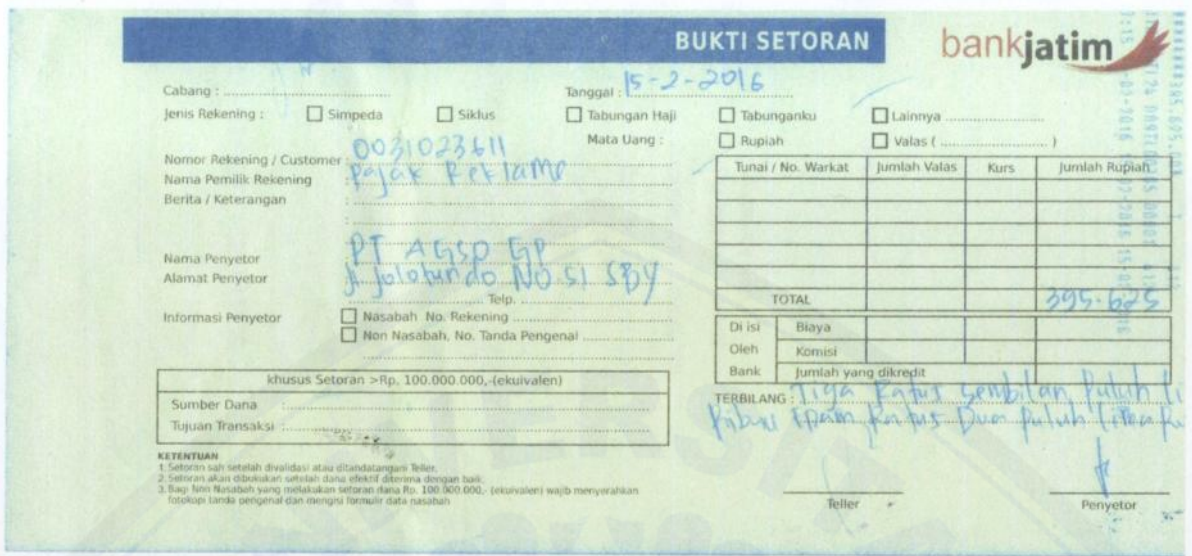 BUKTI SETORAN
bankjatim
Cabang :
Tanggal : 15-2-2016
Jenis Rekening : Simpeda Siklus Tabungan Haji Tabunganku Lainnya
Mata Uang : Rupiah Valas ( )
Nomor Rekening / Customer : 0031023611
Nama Pemilik Rekening : Pajak Reklame
Berita / Keterangan :
Nama Penyetor : PT AGSD GP
Alamat Penyetor : Jl Jolotundo NO 51 SBY
Telp.
Informasi Penyetor Nasabah No. Rekening
Non Nasabah, No. Tanda Pengenal
Tunai / No. Warkat Jumlah Valas Kurs Jumlah Rupiah
TOTAL 395.625
Di isi Oleh Bank
Biaya
Komisi
Jumlah yang dikredit
khusus Setoran >Rp. 100.000.000,-(ekuivalen)
Sumber Dana :
Tujuan Transaksi :
TERBILANG : Tiga Ratus Sembilan Puluh Li
Ribu Enam Ratus Dua Puluh Lima Ru
KETENTUAN
1. Setoran sah setelah divalidasi atau ditandatangani Teller.
2. Setoran akan dibukukan setelah dana efektif diterima dengan baik.
3. Bagi Non Nasabah yang melakukan setoran dana Rp. 100.000.000,- (ekuivalen) wajib menyerahkan
fotokopi tanda pengenal dan mengisi formulir data nasabah
Teller
Penyetor